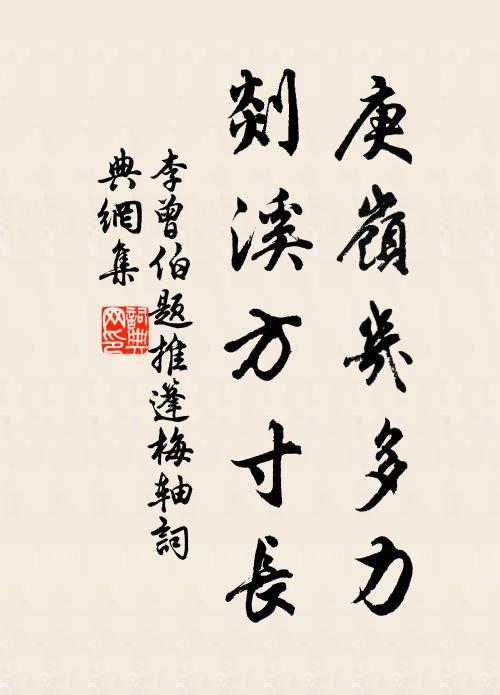 庾嶺幾多力
剡溪方寸長
李曾伯題推篷梅軸詞
典網集
詞典网印